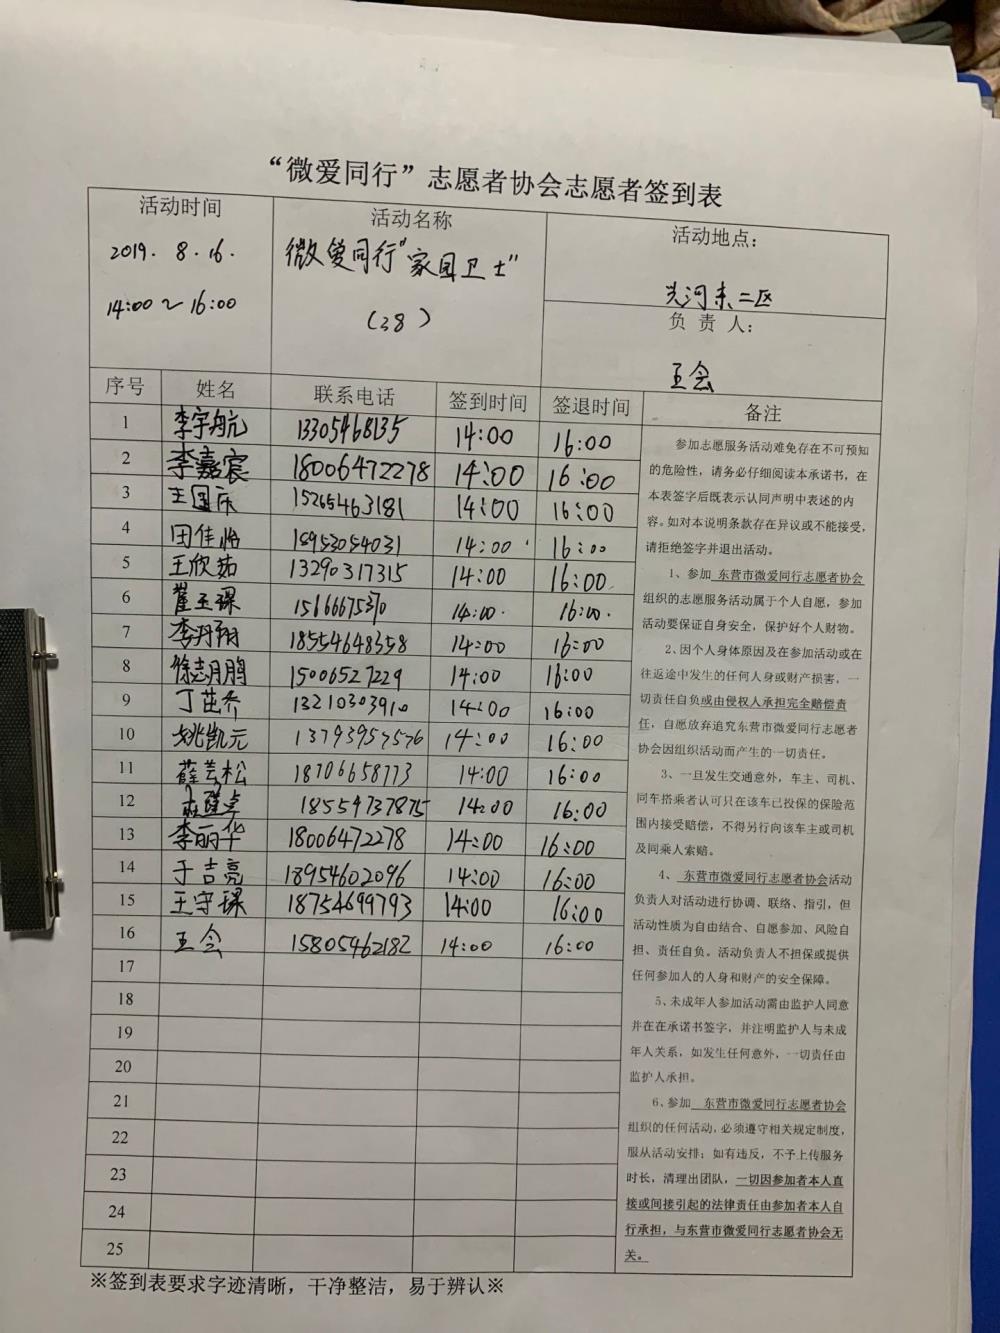 “微爱同行”志愿者协会志愿者签到表
活动时间
2019. 8. 16.
14:00～16:00
活动名称
微爱同行“家园卫士”
(38)
活动地点：
东二区
负 责 人：
王会
序号 姓名 联系电话 签到时间 签退时间 备注
1 李宇航 13305468135 14:00 16:00
2 李嘉宸 18006472278 14:00 16:00
3 王国庆 15265463181 14:00 16:00
4 田佳怡 18953054031 14:00 16:00
5 王欣茹 13290317315 14:00 16:00
6 崔玉琛 14:00. 16:00.
7 李翔 18554648358 14:00 16:00
8 徐志鹏 15006527229 14:00 16:00
9 丁芷乔 13210303910 14:00 16:00
10 姚凯元 13793957576 14:00 16:00
11 薛芸松 18706658773 14:00 16:00
12 18559737875 14:00 16:00
13 李丽华 18006472278 14:00 16:00
14 于吉亮 18954602096 14:00 16:00
15 王守琛 18754699793 14:00 16:00
16 王会 15805462182 14:00 16:00
17
18
19
20
21
22
23
24
25
参加志愿服务活动难免存在不可预知
的危险性，请务必仔细阅读本承诺书，在
本表签字后既表示认同声明中表述的内
容。如对本说明条款存在异议或不能接受，
请拒绝签字并退出活动。
1、参加 东营市微爱同行志愿者协会
组织的志愿服务活动属于个人自愿，参加
活动要保证自身安全，保护好个人财物。
2、因个人身体原因及在参加活动或在
往返途中发生的任何人身或财产损害，一
切责任自负或由侵权人承担完全赔偿责
任，自愿放弃追究东营市微爱同行志愿者
协会因组织活动而产生的一切责任。
3、一旦发生交通意外，车主、司机、
同车搭乘者认可只在该车已投保的保险范
围内接受赔偿，不得另行向该车主或司机
及同乘人索赔。
4、 东营市微爱同行志愿者协会活动
负责人对活动进行协调、联络、指引，但
活动性质为自由结合、自愿参加、风险自
担、责任自负。活动负责人不担保或提供
任何参加人的人身和财产的安全保障。
5、未成年人参加活动需由监护人同意
并在在承诺书签字，并注明监护人与未成
年人关系，如发生任何意外，一切责任由
监护人承担。
6、参加 东营市微爱同行志愿者协会
组织的任何活动，必须遵守相关规定制度，
服从活动安排；如有违反，不予上传服务
时长，清理出团队，一切因参加者本人直
接或间接引起的法律责任由参加者本人自
行承担，与东营市微爱同行志愿者协会无
关。
※签到表要求字迹清晰，干净整洁，易于辨认※